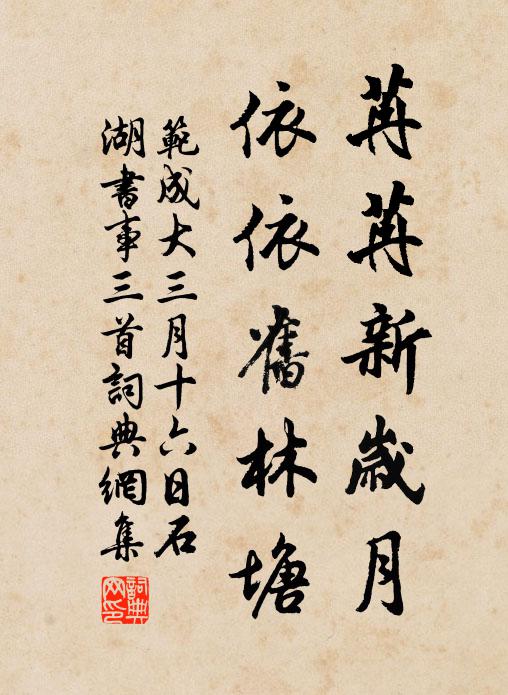 苒苒新歲月
依依舊林塘
範成大三月十六日石
湖書事三首詞典網集
詞典
网印